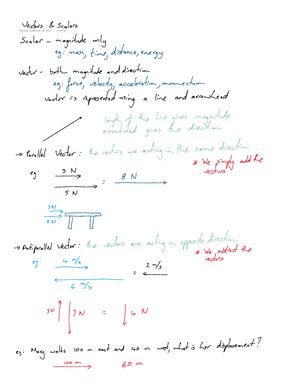 Vectors & Scalars
Scalar - magnitude only
eg: mass, time, distance, energy
vector - both magnitude and direction
eg: force, velocity, acceleration, momentum
vector is represented using a line and arrowhead
length of the line gives magnitude
arrowhead gives the direction
→ Parallel Vector: the vectors are acting in the same direction
* We simply add the vectors
eg: 3 N
5 N
= 8 N
3N
5N
→ Antiparallel Vector: the vectors are acting in opposite direction
* We subtract the vectors
eg: 4 m/s
6 m/s
= 2 m/s
3N 7N = 4N
eg: Mary walks 100 m east and 40 m west, what is her displacement?
100 m
60 m